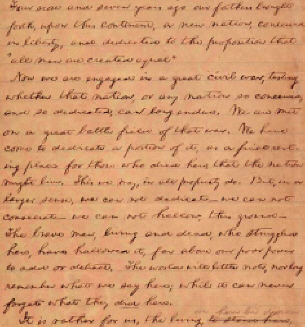 Four score and seven years ago our fathers brought
forth, upon this continent, a new nation, conceived
in liberty, and dedicated to the proposition that
"all men are created equal"
Now we are engaged in a great civil war, testing
whether that nation, or any nation so conceived,
and so dedicated, can long endure. We are met
on a great battle field of that war. We have
come to dedicate a portion of it, as a final rest-
ing place for those who died here, that the nation
might live. This we may, in all propriety do. But, in a
larger sense, we can not dedicate — we can not
consecrate — we can not hallow, this ground —
The brave men, living and dead, who struggled
here, have hallowed it, far above our poor power
to add or detract. The world will little note, nor long
remember what we say here; while it can never
forget what they did here.
It is rather for us, the living,